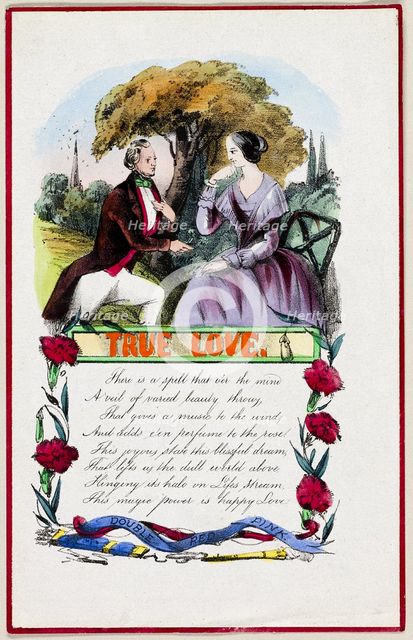 Heritage Heritage
Heritage Heritage
Heritage Heritage
TRUE LOVE.
There is a spell that o'er the mind
A veil of varied beauty throws,
That gives a music to the wind,
And adds e'en perfume to the rose!
This joyous state this blissful dream,
That lifts us the dull world above
Hanging its halo on Life's Stream,
This magic power is happy Love
DOUBLE RED PINK